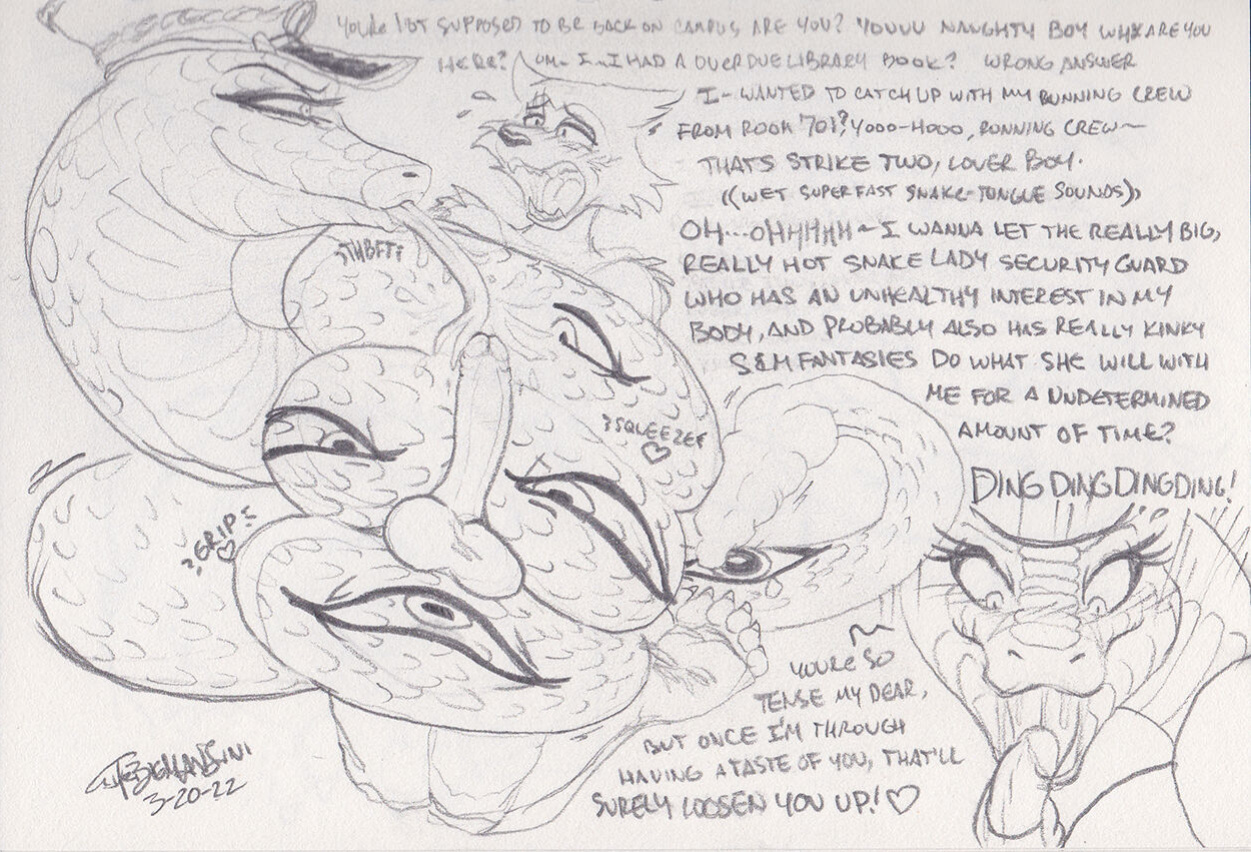 YOU'RE NOT SUPPOSED TO BE BACK ON CAMPUS ARE YOU? YOUUU NAUGHTY BOY WHY ARE YOU
HERE? UM- I- I HAD A OVERDUE LIBRARY BOOK? WRONG ANSWER
I- WANTED TO CATCH UP WITH MY RUNNING CREW
FROM ROOM 701? YOOO-HOOO, RUNNING CREW~
THATS STRIKE TWO, LOVER BOY.
((WET SUPERFAST SNAKE-TONGUE SOUNDS))
OH...OHHHHH~I WANNA LET THE REALLY BIG,
REALLY HOT SNAKE LADY SECURITY GUARD
WHO HAS AN UNHEALTHY INTEREST IN MY
BODY, AND PROBABLY ALSO HAS REALLY KINKY
S&M FANTASIES DO WHAT SHE WILL WITH
ME FOR A UNDETERMINED
AMOUNT OF TIME?
DING DING DING DING!
THBFT
SQUEEZE ♡
GRIP ♡
YOURE SO
TENSE MY DEAR,
BUT ONCE I'M THROUGH
HAVING A TASTE OF YOU, THAT'LL
SURELY LOOSEN YOU UP! ♡
3-20-22